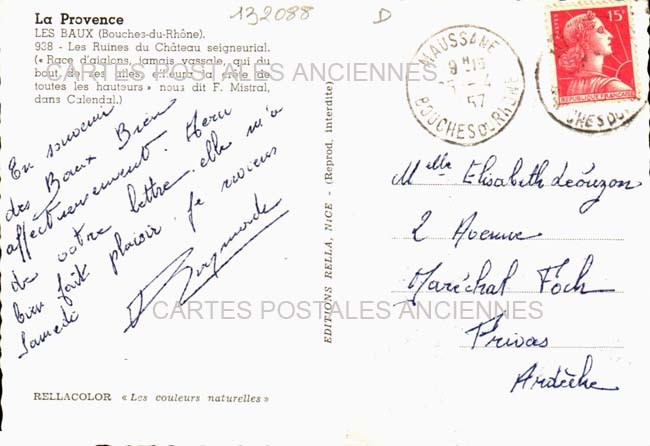 La Provence
LES BAUX (Bouches-du-Rhône).
938 - Les Ruines du Château seigneurial.
(« Race d'aiglons, jamais vassale, qui du
bout de ses ailes, effleura la crête de
toutes les hauteurs » nous dit F. Mistral,
dans Calendal.)
132088
D
MAUSSANE
9H15
4
57
BOUCHES DU RHÔNE
15F
POSTES
REPUBLIQUE FRANÇAISE
CARTES POSTALES ANCIENNES
En souvenir
des Baux Bien
affectueusement. Merci
de votre lettre, elle m'a
bien fait plaisir. Je reviens
Samedi
Raymonde
EDITIONS RELLA, NICE - (Reprod. interdite)
Melle Elisabeth Leouzon
2 Avenue
Maréchal Foch
Privas
Ardèche
CARTES POSTALES ANCIENNES
RELLACOLOR « Les couleurs naturelles »